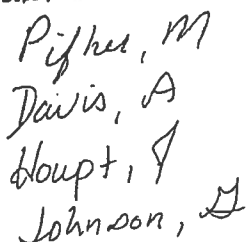 Pifher, M
Davis, A
Houpt, J
Johnson, G